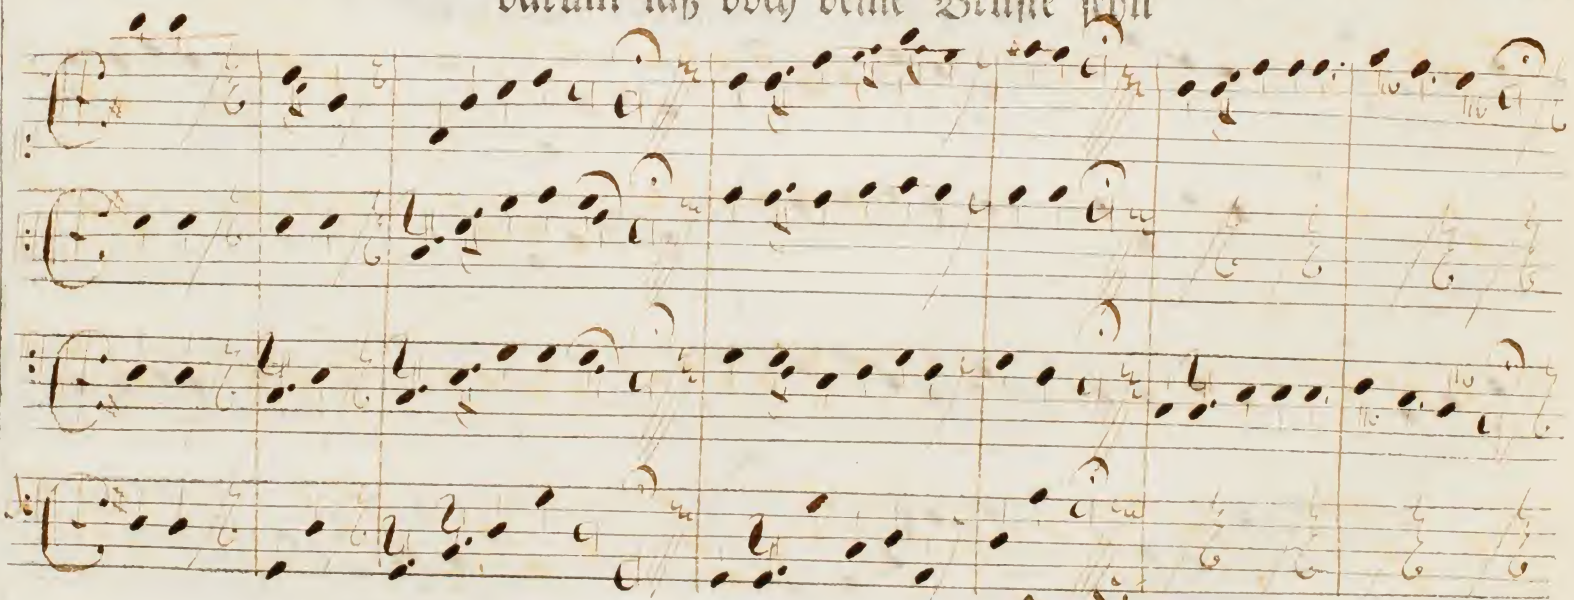 darum laß doch deine Brüste seyn